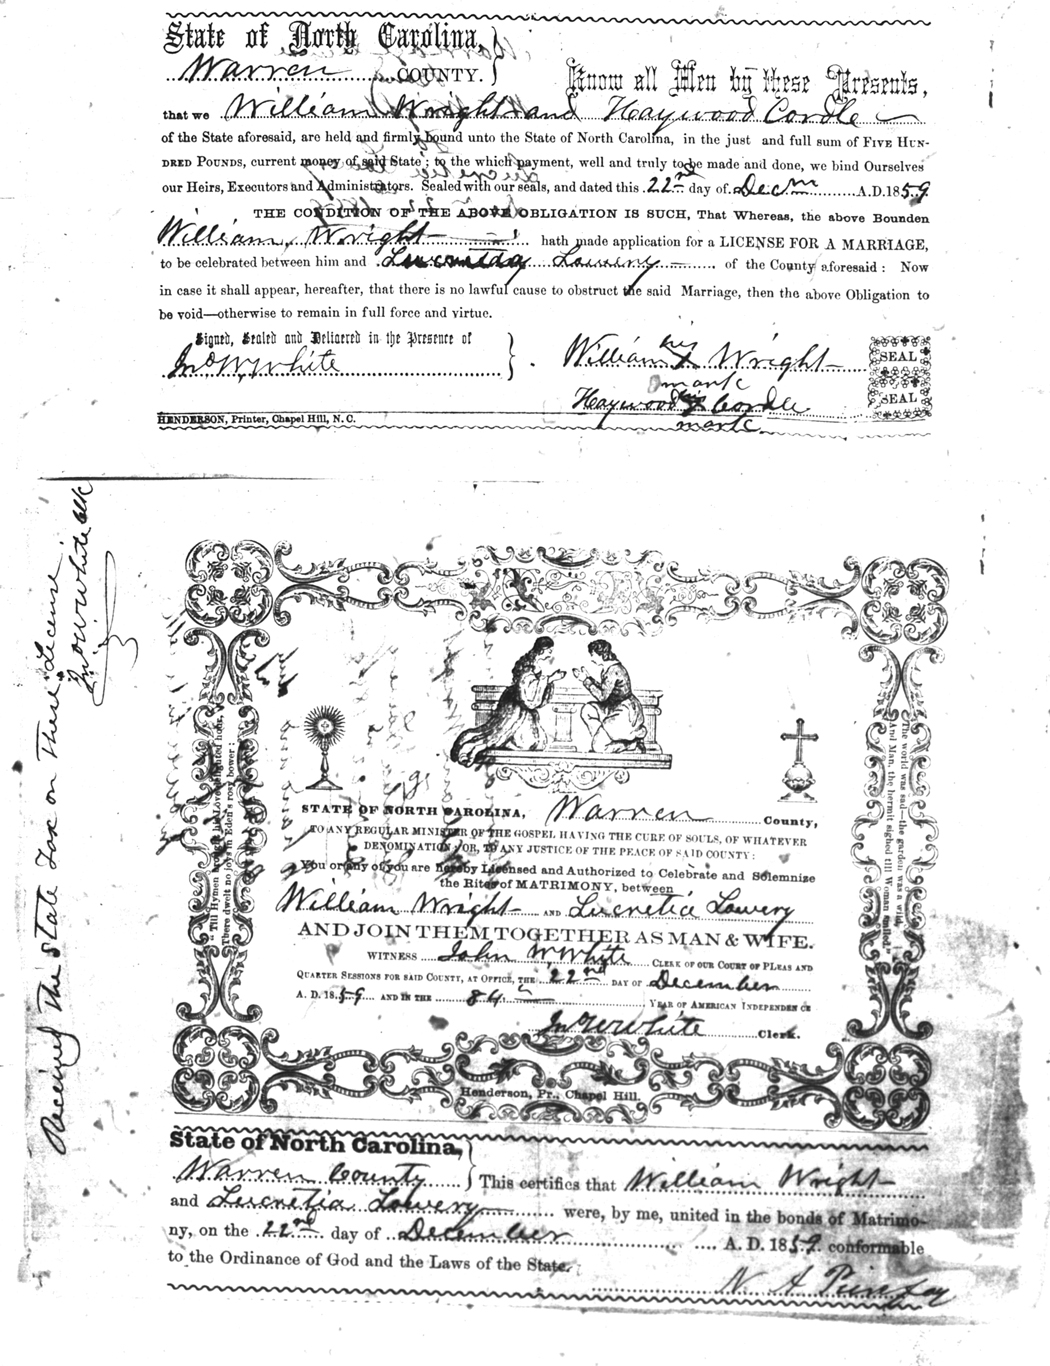 State of North Carolina,
Warren COUNTY.
Know all Men by these Presents,
that we William Wright and Haywood Cordle
of the State aforesaid, are held and firmly bound unto the State of North Carolina, in the just and full sum of FIVE HUN-
DRED POUNDS, current money of said State; to the which payment, well and truly to be made and done, we bind Ourselves
our Heirs, Executors and Administrators. Sealed with our seals, and dated this 22nd day of Decm A.D. 1859
THE CONDITION OF THE ABOVE OBLIGATION IS SUCH, That Whereas, the above Bounden
William Wright hath made application for a LICENSE FOR A MARRIAGE,
to be celebrated between him and Lucretia Lowery of the County aforesaid: Now
in case it shall appear, hereafter, that there is no lawful cause to obstruct the said Marriage, then the above Obligation to
be void—otherwise to remain in full force and virtue.
Signed, Sealed and Delivered in the Presence of
Jno W. White
William his X Wright
mark
SEAL
Haywood his X Cordle
mark
SEAL
HENDERSON, Printer, Chapel Hill, N. C.
Received The State Tax on These License
Jno W White Clk
"Till Hymen brought his Love-delighted hour,
There dwelt no joys in Eden's rosy bower:
The world was sad—the garden was a wild,
And Man, the hermit sighed till Woman smiled."
STATE OF NORTH CAROLINA, Warren County,
TO ANY REGULAR MINISTER OF THE GOSPEL HAVING THE CURE OF SOULS, OF WHATEVER
DENOMINATION, OR, TO ANY JUSTICE OF THE PEACE OF SAID COUNTY:
You or any of you are hereby Licensed and Authorized to Celebrate and Solemnize
the Rites of MATRIMONY, between
William Wright AND Lucretia Lowery
AND JOIN THEM TOGETHER AS MAN & WIFE.
WITNESS John W. White CLERK OF OUR COURT OF PLEAS AND
QUARTER SESSIONS FOR SAID COUNTY, AT OFFICE, THE 22nd DAY OF December
A. D. 1859 AND IN THE 84 YEAR OF AMERICAN INDEPENDENCE
Jno W White Clerk.
Henderson, Pr., Chapel Hill.
State of North Carolina,
Warren County This certifies that William Wright
and Lucretia Lowery were, by me, united in the bonds of Matrimo-
ny, on the 22nd day of December A. D. 1859 conformable
to the Ordinance of God and the Laws of the State.
N. A.